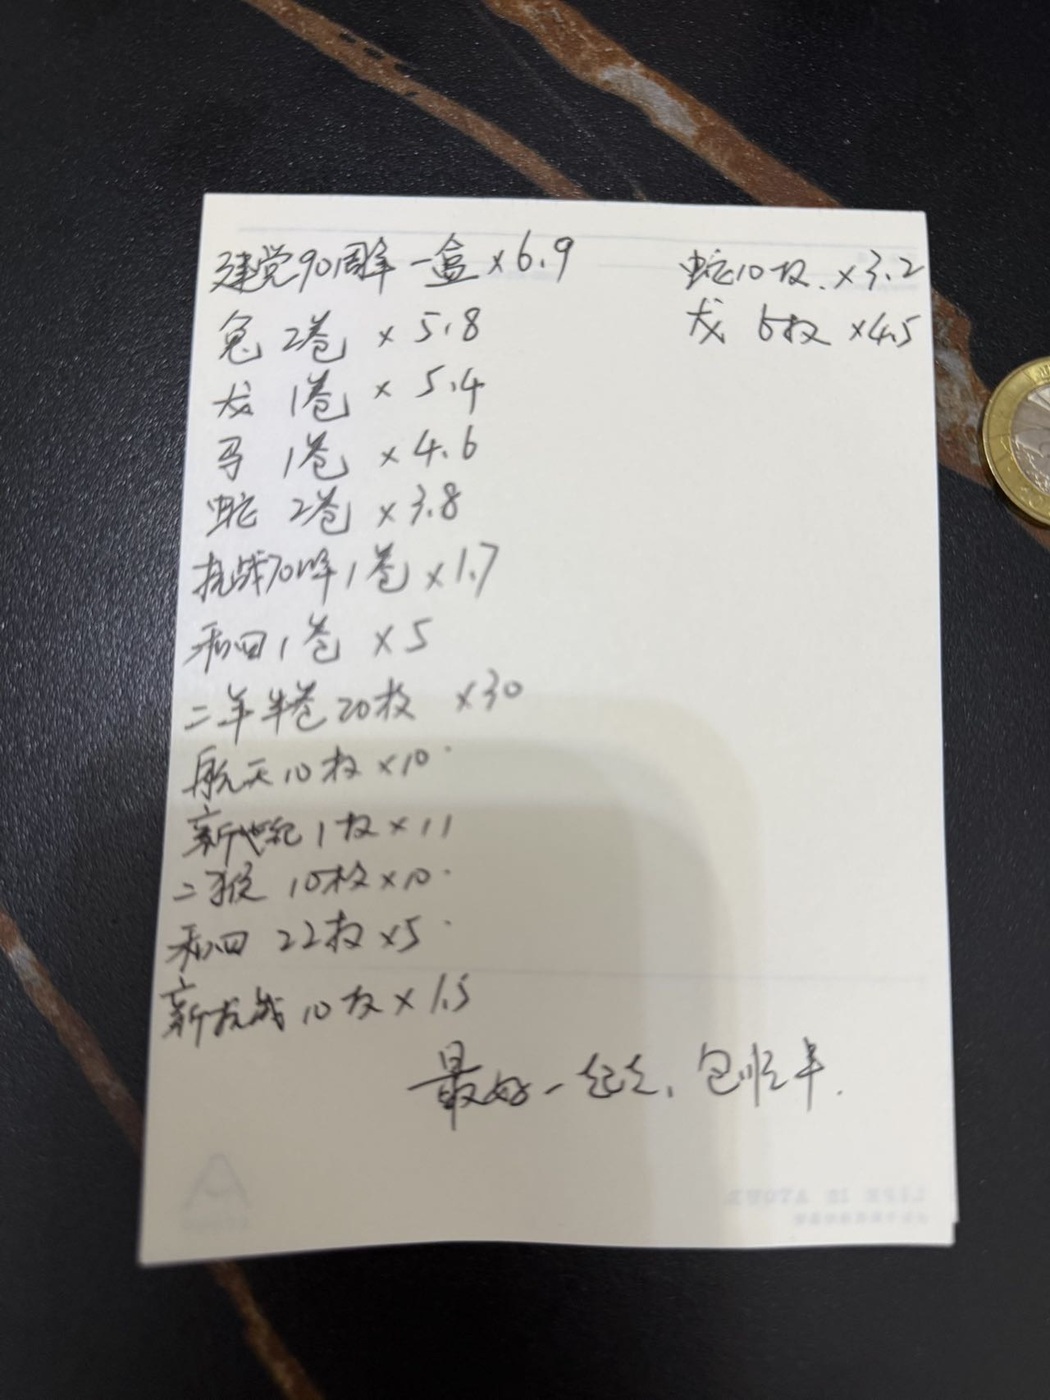 建党90周年一盒×6.9
兔 2卷 × 5.8
龙 1卷 × 5.4
马 1卷 ×4.6
蛇 2卷 ×3.8
抗战70周年1卷×1.7
和四1卷 ×5
二羊半卷20枚 ×30
航天10枚×10
新世纪1枚×11
二猴 10枚×10
和四 22枚×5
新抗战10枚×1.5
最好一起走，包顺丰.
蛇10枚.×3.2
龙 6枚 ×4.5